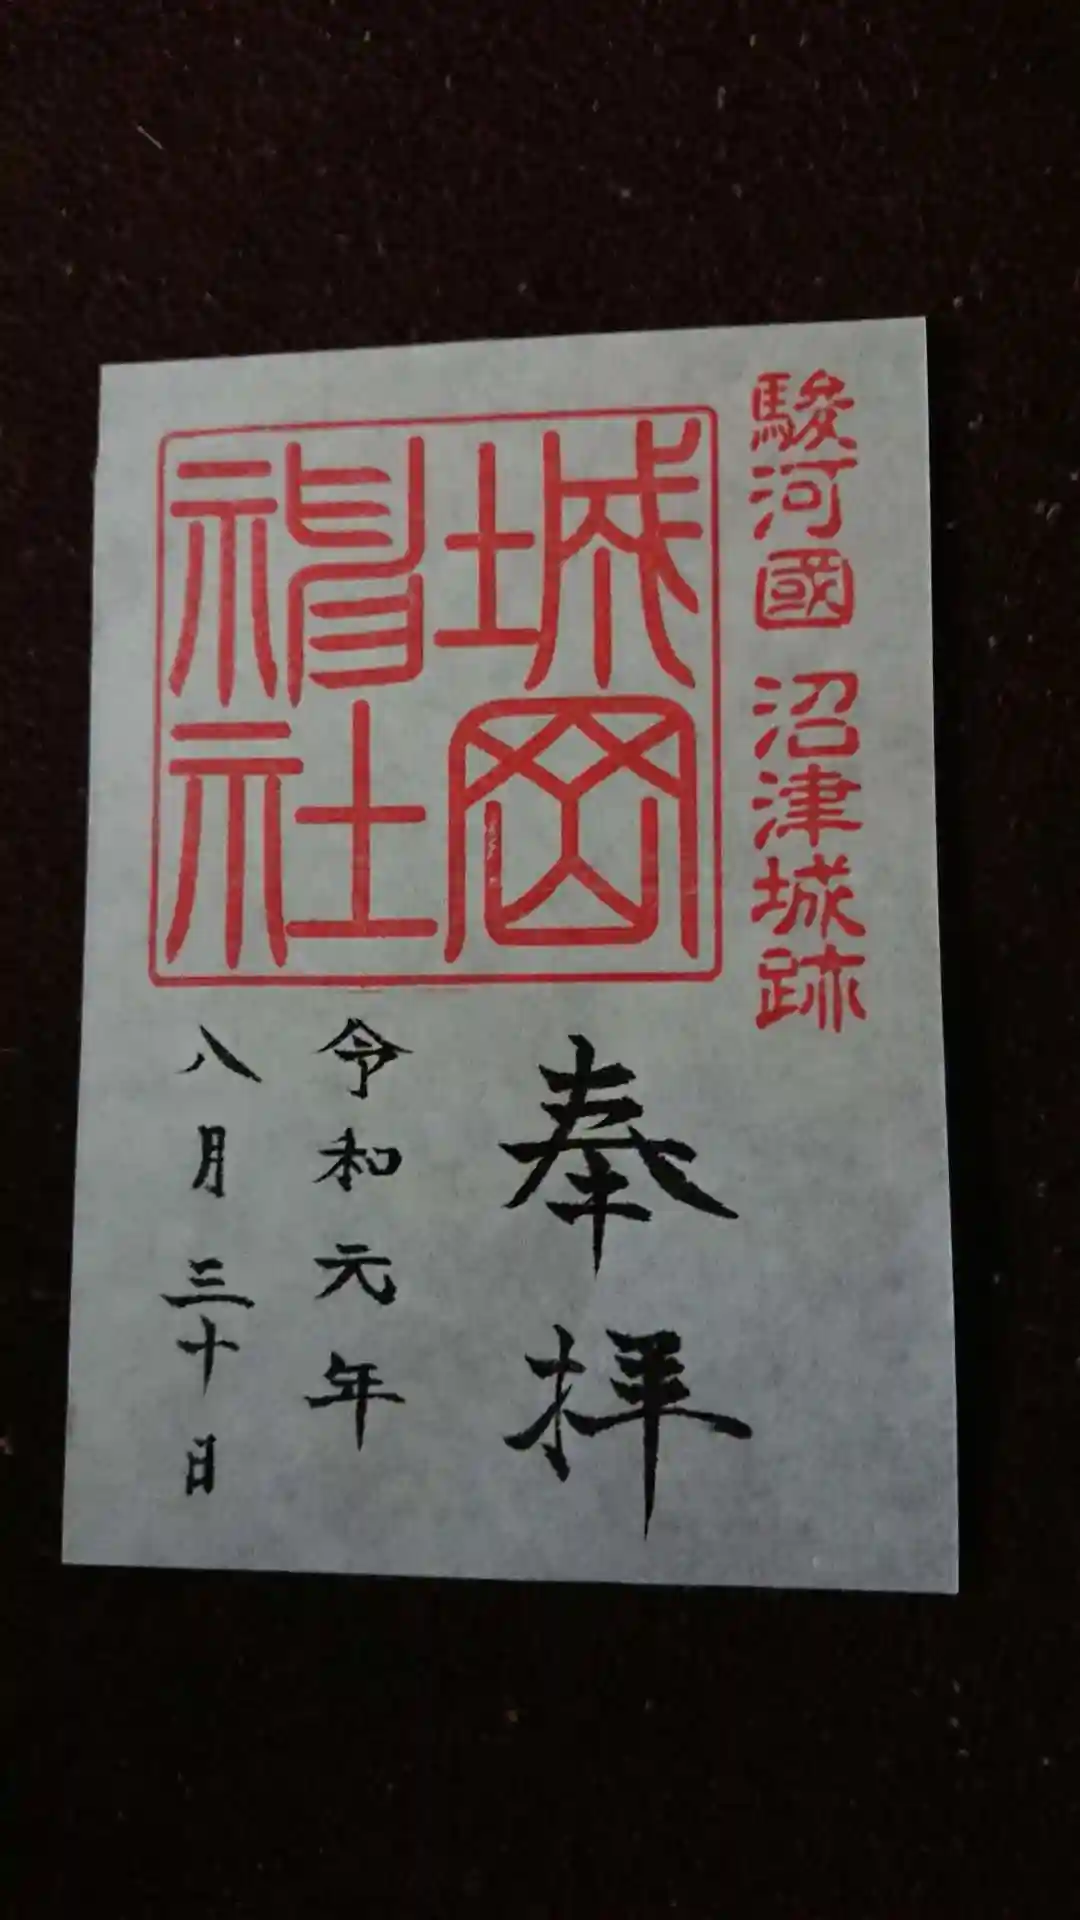 駿河國 沼津城跡
城岡
神社
奉拝
令和元年
八月三十日